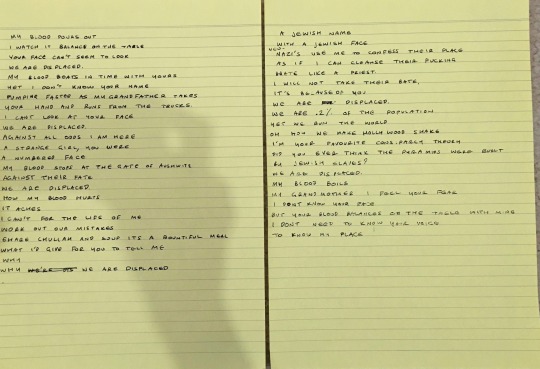 MY BLOOD POURS OUT
I WATCH IT BALANCE ON THE TABLE
YOUR FACE CAN'T SEEM TO LOOK
WE ARE DISPLACED.
MY BLOOD BEATS IN TIME WITH YOURS
YET I DON'T KNOW YOUR NAME
PUMPING FASTER AS MY GRANDFATHER TAKES
YOUR HAND AND RUNS FROM THE TRUCKS.
I CAN'T LOOK AT YOUR FACE
WE ARE DISPLACED.
AGAINST ALL ODDS I AM HERE
A STRANGE GIRL, YOU WERE
A NUMBERED FACE
MY BLOOD STOPS AT THE GATE OF
AGAINST THEIR FATE
WE ARE DISPLACED
HOW MY BLOOD HURTS
IT ACHES
I CAN'T FOR THE LIFE OF ME
WORK OUT OUR MISTAKES
SHARE CHULLAH AND SOUP ITS A BOUNTIFUL MEAL
WHAT I'D GIVE FOR YOU TO TELL ME
WHY
WHY WE ARE DISPLACED
A JEWISH NAME
WITH A JEWISH FACE
NAZI'S USE ME TO CONFESS THEIR PLACE
AS IF I CAN CLEANSE THEIR FUCKING
LIKE A PRIEST.
I WILL NOT TAKE THEIR BATE,
IT'S BECAUSE OF YOU
WE ARE DISPLACED.
WE ARE .2% OF THE POPULATION
YET WE RUN THE WORLD
OH HOW WE MAKE HOLLYWOOD SHAKE
I'M YOUR FAVOURITE CONSPIRACY THEORY
DID YOU EVER THINK THE PYRAMIDS WERE BUILT
BY JEWISH SLAVES?
WE ARE DISPLACED.
MY BLOOD BOILS
MY GRANDMOTHER I FEEL YOUR FEAR
I DONT KNOW YOUR FACE
BUT YOUR BLOOD BALANCES ON THE TABLE WITH MINE
I DONT NEED TO KNOW YOUR VOICE
TO KNOW MY PLACE